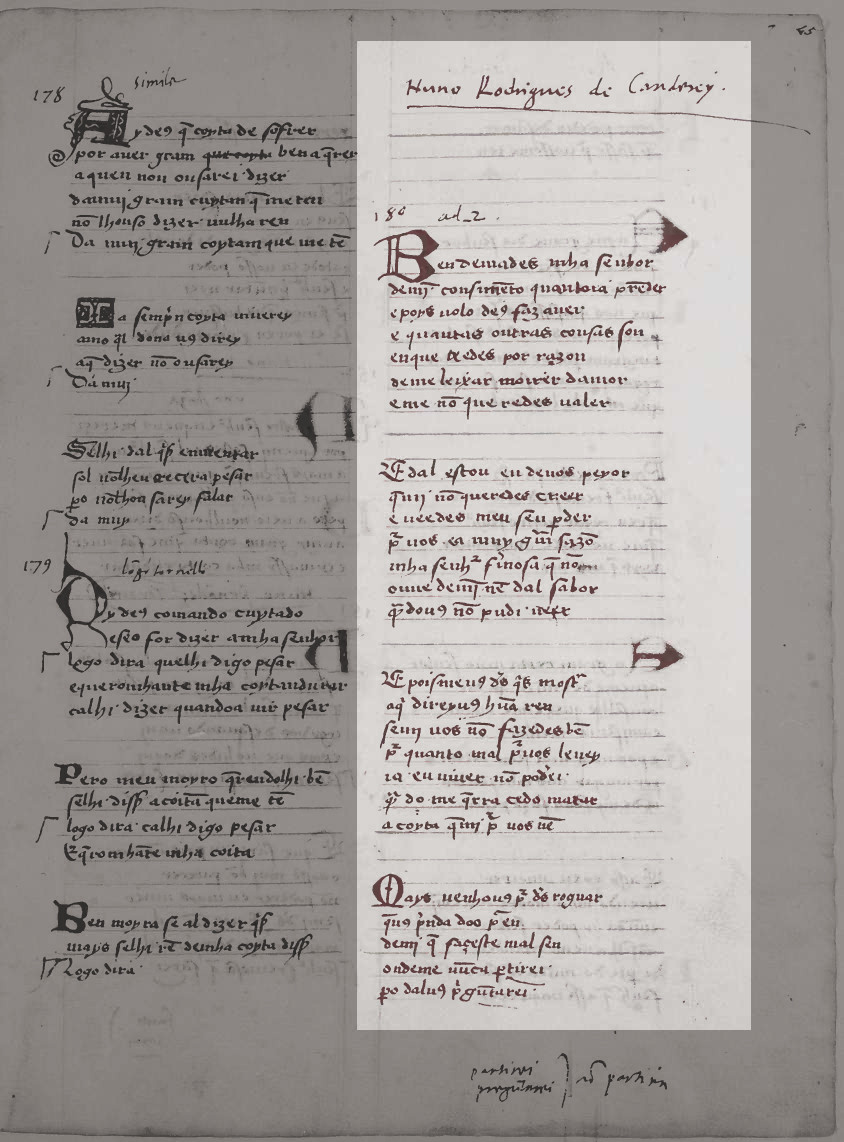 178
simile
Ay de9 q̄ coyta de sofrer
por auer gram que coyta ben a q̄rer
a quen non ousarei dizer
da mui gram cuytan q̄ me ten
nō lhouso dizer nulha ren
Da mui gram coytam que me tē
a semp̄ en coyta uiuerey
amo q̄l dona u9 direy
aq̄ dizer nō ousarey
Da mui
Selhi dal q̄s ementar
sol nōlheu
pesar
po nōlhou sarey falar
da muy
179
Oy de9 comando cuytado
e seo for dizer a mha senhor
logo dira quelhi digo pesar
e queromhante mha coytanduzer
calhi dizer quandoa uir pesar
Pero meu moyro q̄rendolhi bē
selhi diss̄ a coita que me tē
logo dira calhi digo pesar
E q̄romhāte mha coita
Ben moyra se al dizer q̄s
mays selhi rē demha coyta diss̄
Logo dira
45
Nuno Rodrigues de Candarey.
180 ad_2.
Ben deuiades mha senhor
demī consimēto quantoia prēder
e poys uolo de9 faz auer
e quantas outras cousas son
enque tēedes por razon
de me leixar moirer damor
e me nō que redes ualer
E dal estou en deuos peyor
q̄mj nō queredes creer
e ueedes meu sen pder
p̄ uos ea muy g̃m sazō
mha senh̄ f̄mosa q̄ nō
ouue demī nē dal sabor
q̄ndou9 nō pudi ueer
E poismeu9 d̄s q̄s most̄
aq̄ direyu9 hūa ren
senn uos nō fazedes bē
p̄ quanto mal p̄uos leuey
ia eu uiuer nō podei
q̄ do me q̄rra cedo matar
a coyta q̄mī p̄ uos uē
Mays uenhou9 p̄ d̄s roguar
q̄u9 p̄nda doo p̄ en
demī q̄ façeste mal sen
ondeme nūca ptirei
po dalu9 p̄gūtarei
partirei
preguntarei } ad partim